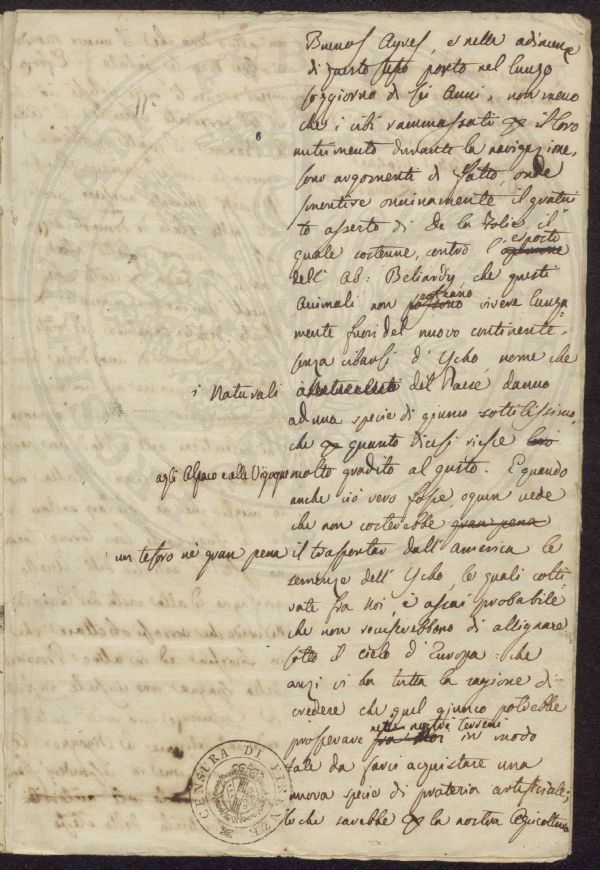 11.
6
Buenos Ayres, e nelle adiacenze
di questo stesso porto nel lungo
soggiorno di sei Anni, non meno
che i cibi rammassati p il loro
nutrimento durante la navigazione,
sono argomenti di fatto, onde
smentire onninamente il gratui
to asserto di De la Folie il
quale sostenne, contro l'esposto opinione
dell' Ab: Beliardy che questi
Animali non poteano possono vivere lunga=
mente fuori del nuovo continente,
senza cibarsi d'Ycho nome che
i Naturali
del Paese danno
ad una specie di giunco sottilissimo,
che p quanto dicesi riesce loro
agli Alpaco e alle Vigogne molto gradito al gusto. E quando
anche ciò vero fosse, ognun vede
che non costerebbe gran pena
un tesoro nè gran pena il trasportar dall'america le
semenze dell'Ycho, le quali colti
vate fra noi, è assai probabile
che non ricuserebbono di allignare
sotto il cielo d'Europa: che
anzi vi ha tutta la ragione di
credere che quel giunco potrebbe
prosperare nei nostri terreni fra noi in modo
tale da farci acquistare una
nuova specie di prateria artificiale;
lo che sarebbe p la nostra Agricoltura
CENSURA DI FIRENZE